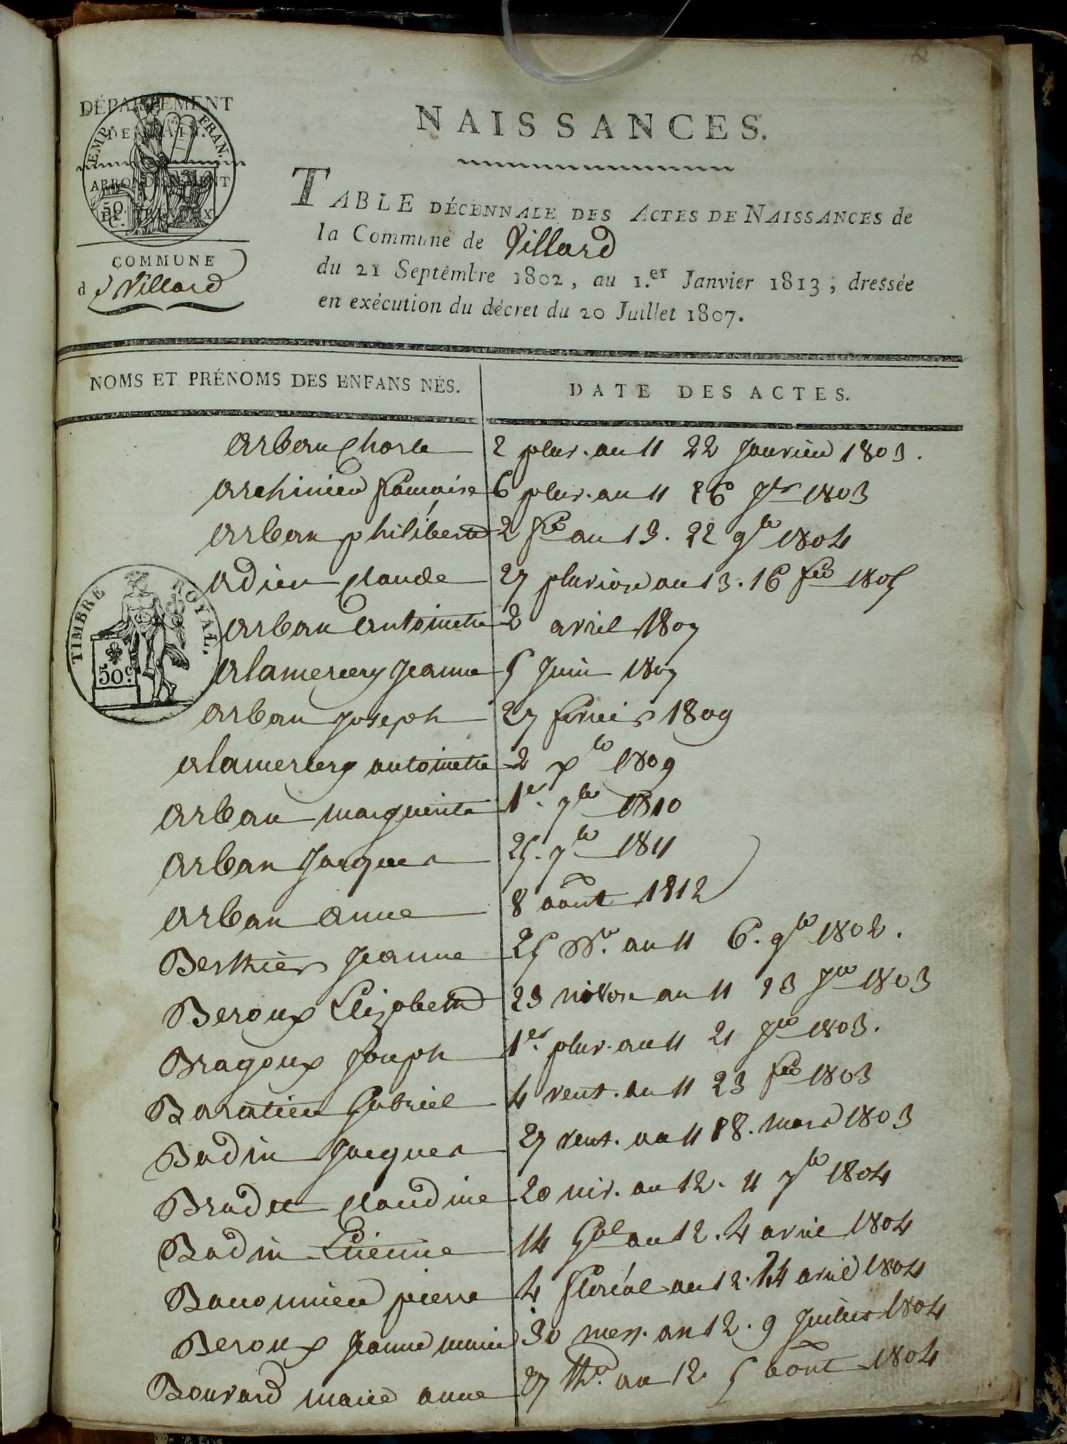 DÉPARTEMENT
DE L'AIN.
ARRONDISSEMENT
EMP. FRAN.
50 C.
COMMUNE
d Villard
NAISSANCES.
TABLE DÉCENNALE DES ACTES DE NAISSANCES de
la Commune de Villard
du 21 Septembre 1802, au 1.er Janvier 1813; dressée
en exécution du décret du 20 Juillet 1807.
NOMS ET PRÉNOMS DES ENFANS NÉS. DATE DES ACTES.
Arban Charle 2 pluv. an 11 22 Janvier 1803.
françoise 6 pluv. an 11 26 Jer 1803
Arban philibert 2 an 13. 22 9bre 1804
Adieu claude 27 pluviose an 13. 16 feb 1805
TIMBRE ROYAL.
50 c.
Arban antoinette 2 avril 1807
Alamercery Jeanne 5 Juin 1807
Arban Joseph 27 fevrier 1809
Alamercery antoinette 2 1809
Arban marguerite 1er 7bre 1810
Arban Jacques 25. 7bre 1811
Arban anne 8 août 1812
Berthier Jeanne 25 an 11 6. 9bre 1802.
Beroux Elizabeth 23 nivose an 11 13 1803
Bragoux Joseph 1er pluv. an 11 21 1803.
Baratier Gabriel 4 vent. an 11 23 feb 1803
Badin Jacques 27 vent. an 11 18. mars 1803
claudine 20 niv. an 12. 11 1804
Badin Etienne 14 Gal an 12. 4 avril 1804
pierre 4 floréal an 12. 24 avril 1804
Beroux Jeanne marie 20 mess. an 12. 9 Juillet 1804
Bouvard marie anne 17 thr. an 12 5 août 1804